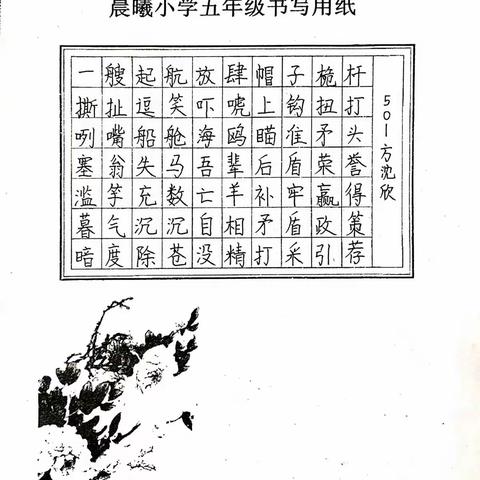 晨曦小学五年级书写用纸
一艘起航放肆帽子桅杆
撕扯逗笑吓唬上钩扭打
咧嘴船舱海鸥瞄准矛头
塞翁失马吾辈后盾荣誉
滥竽充数亡羊补牢赢得
暮气沉沉自相矛盾政策
暗度除苍没精打采引荐
501方沈欣